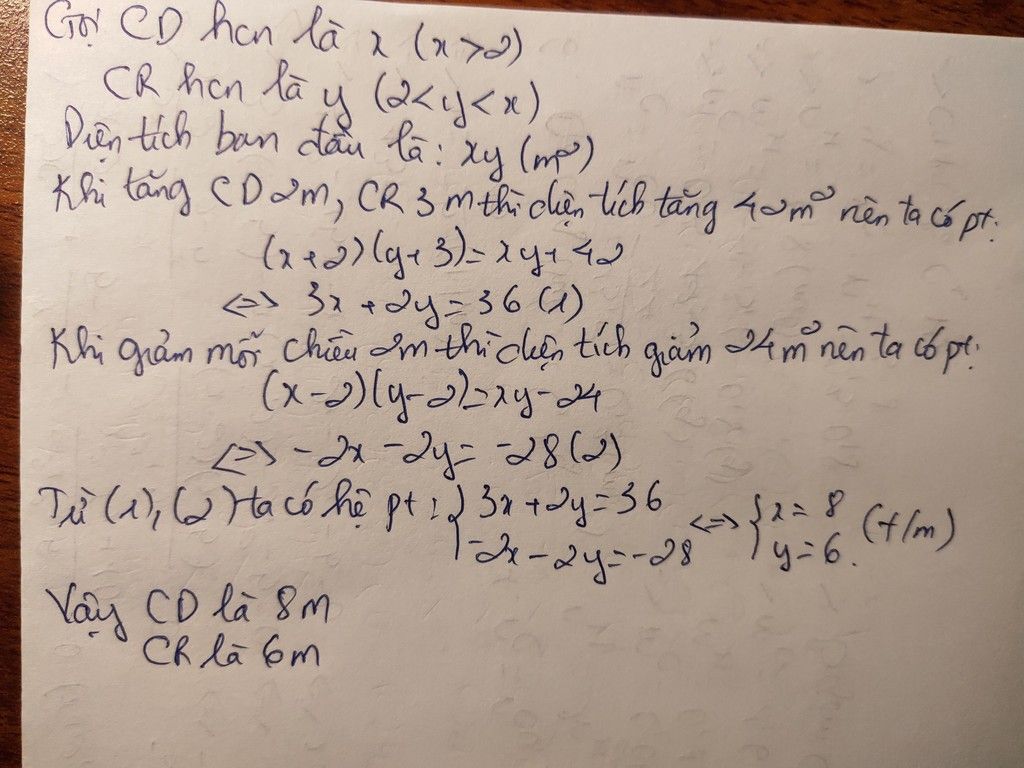 Gọi CD hcn là x (x>2)
CR hcn là y (2<y<x)
Diện tích ban đầu là: xy (m²)
Khi tăng CD 2m, CR 3m thì diện tích tăng 42m² nên ta có pt:
(x+2)(y+3)=xy+42
<=> 3x+2y=36 (1)
Khi giảm mỗi chiều 2m thì diện tích giảm 24m² nên ta có pt:
(x-2)(y-2)=xy-24
<=> -2x-2y=-28 (2)
Từ (1),(2) ta có hệ pt: { 3x+2y=36 <=> { x=8 (t/m)
-2x-2y=-28 y=6.
Vậy CD là 8m
CR là 6m